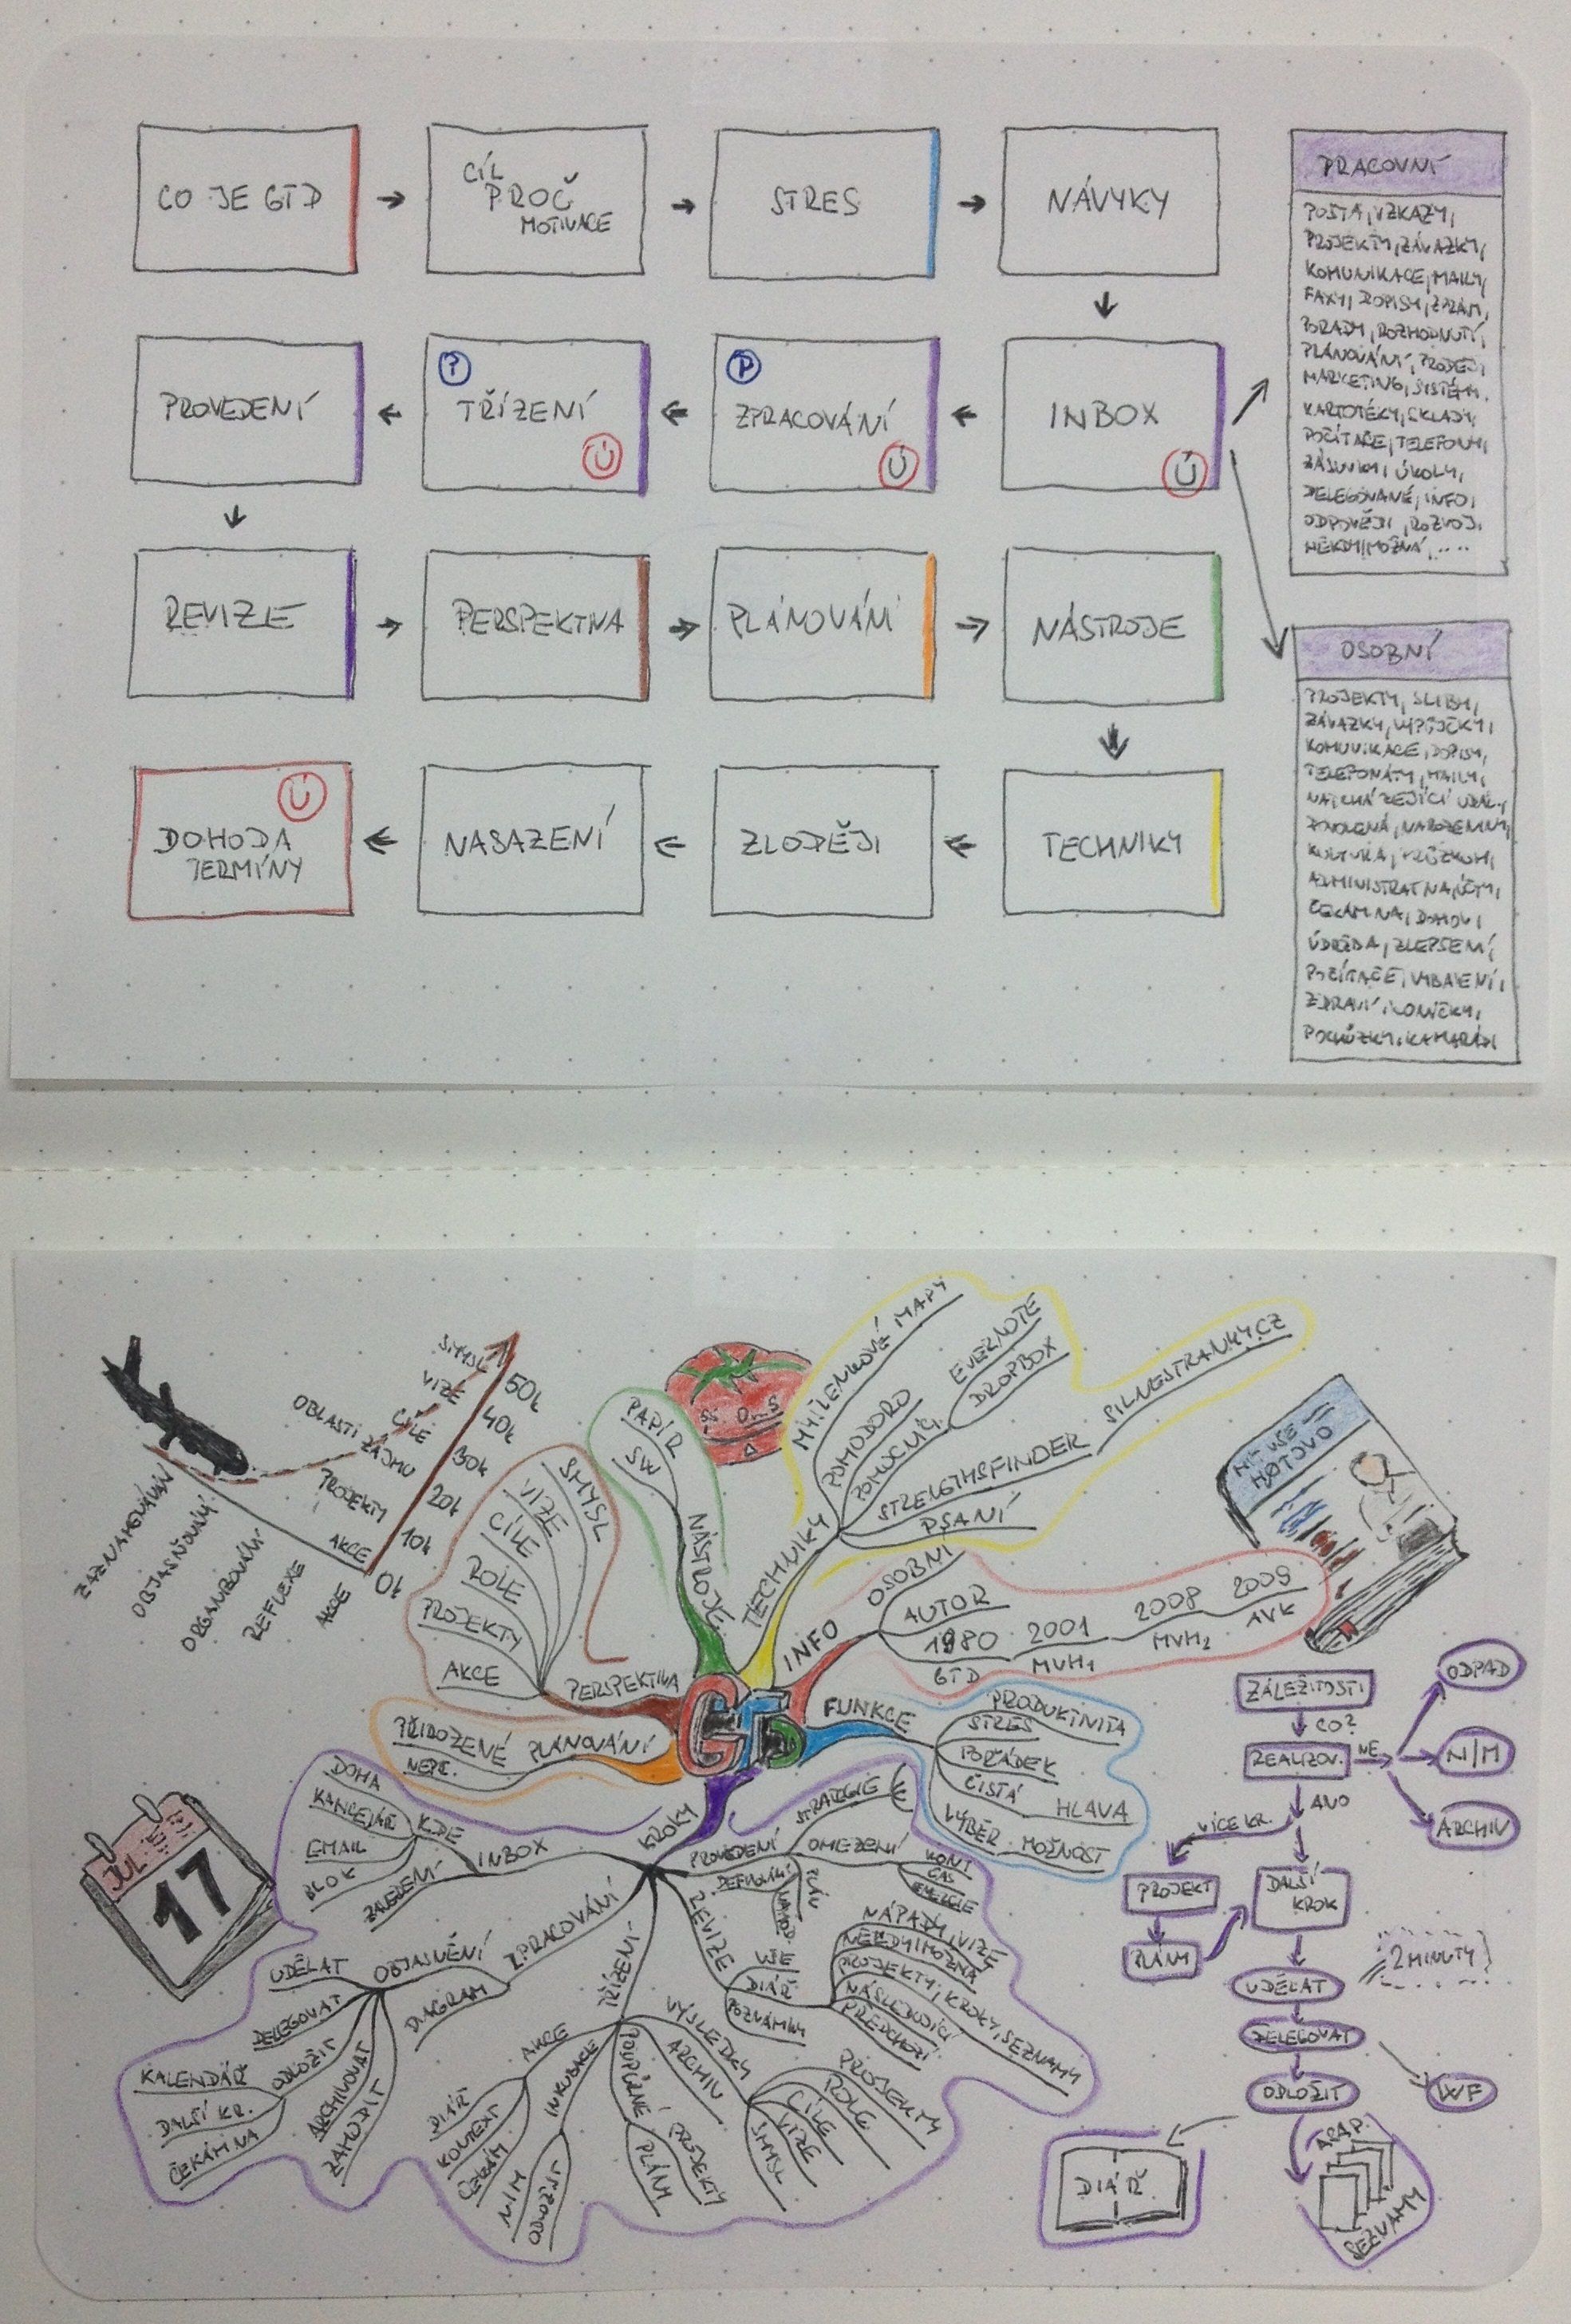 CO JE GTD
CÍL
PROČ
MOTIVACE
STRES
NÁVYKY
PROVEDENÍ
?
TŘÍZENÍ
Ú
P
ZPRACOVÁNÍ
Ú
INBOX
Ú
REVIZE
PERSPEKTIVA
PLÁNOVÁNÍ
NÁSTROJE
Ú
DOHODA
TERMÍNY
NASAZENÍ
ZLODĚJI
TECHNIKY
PRACOVNÍ
POŠTA, VZKAZY,
PROJEKTY, ZÁVAZKY,
KOMUNIKACE, MAILY,
FAXY, DOPISY, ZPRÁV,
PORADY, ROZHODNUTÍ,
PLÁNOVÁNÍ, PRODEJ,
MARKETING, SYSTÉM,
KARTOTÉKY, SKLADY,
POČÍTAČE, TELEFONY,
ZÁSUVKY, ÚKOLY,
DELEGOVANÉ, INFO,
ODPOVĚDI, ROZVOJ,
NĚKDY/MOŽNÁ, ....
OSOBNÍ
PROJEKTY, SLIBY,
ZÁVAZKY, VÝPŮJČKY,
KOMUNIKACE, DOPISY,
TELEFONÁTY, MAILY,
NADCHÁZEJÍCÍ UDÁL.,
DOVOLENÁ, NAROZENINY,
KULTURA,
ADMINISTRATIVA, ÚČTY,
ČEKÁM NA, DOMOV,
ÚDRŽBA, ZLEPŠENÍ,
POČÍTAČE, VYBAVENÍ,
ZDRAVÍ, KONÍČKY,
POCHŮZKY, KAMARÁDI
SMYSL
VIZE
CÍLE
OBLASTI
ZÁJMU
PROJEKTY
AKCE
50k
40k
30k
20k
10k
0k
ZAZNAMENÁVÁNÍ
OBJASŇOVÁNÍ
ORGANIZOVÁNÍ
REFLEXE
AKCE
GTD
PERSPEKTIVA
SMYSL
VIZE
CÍLE
ROLE
PROJEKTY
AKCE
NÁSTROJE
PAPÍR
SW
TECHNIKY
MYŠLENKOVÉ MAPY
POMODORO
POMOCNÍCI
EVERNOTE
DROPBOX
STRENGTHSFINDER
SILNESTRANKY.CZ
PSANÍ
INFO
OSOBNÍ
AUTOR
1980
GTD
2001
MVH1
2008
MVH2
2009
AVK
MÍT VŠE
HOTOVO
FUNKCE
PRODUKTIVITA
STRES
POŘÁDEK
ČISTÁ HLAVA
VÝBĚR MOŽNOST
PLÁNOVÁNÍ
PŘIROZENÉ
NEPŘ.
KROKY
INBOX
KDE
DOMA
KANCELÁŘ
EMAIL
BLOK
ZAŘÍZENÍ
ZPRACOVÁNÍ
OBJASNĚNÍ
DIAGRAM
UDĚLAT
DELEGOVAT
ODLOŽIT
KALENDÁŘ
DALŠÍ KR.
ČEKÁM NA
ARCHIVOVAT
ZAHODIT
TŘÍZENÍ
AKCE
DIÁŘ
KONTEXT
ČEKÁM
INKUBACE
N/M
ODLOŽENÍ
PODPŮRNÉ
PLÁNY
PROJEKTY
ARCHIV
VÝSLEDKY
PROJEKTY
ROLE
CÍLE
VIZE
SMYSL
REVIZE
VŠE
DIÁŘ
POZNÁMKY
NÁPADY, VIZE
NĚKDY/MOŽNÁ
PROJEKTY, KROKY, SEZNAMY
NÁSLEDUJÍCÍ
PŘEDCHOZÍ
PROVEDENÍ
STRATEGIE
OMEZENÍ
KONT
ČAS
ENERGIE
PLÁN
JUL
17
ZÁLEŽITOSTI
CO?
REALIZOV.
NE
ODPAD
N/M
ARCHIV
ANO
VÍCE KR.
PROJEKT
PLÁN
DALŠÍ
KROK
2 MINUTY
UDĚLAT
DELEGOVAT
WF
ODLOŽIT
DIÁŘ
ASAP.
SEZNAMY